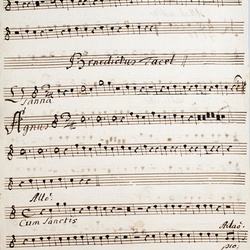 Benedictus tacet
Osanna
Agnus
Allo:
Cum Sanctis
Adao